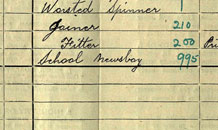 Worsted Spinner 1
Joiner 210
Fitter 200 Pri
School Newsboy 995